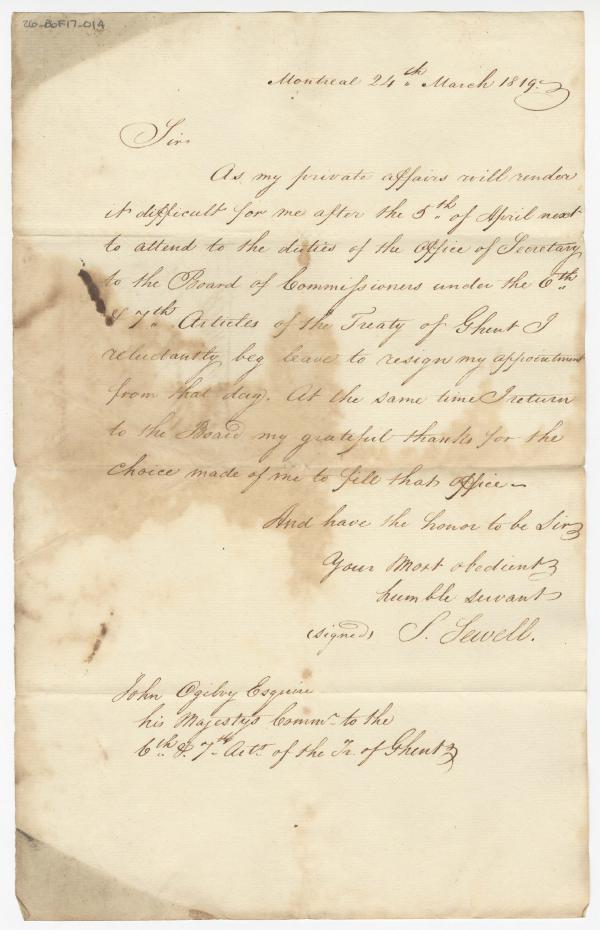 26-B6F17-01A
Montreal 24th March 1819.
Sir
As my private affairs will render
it difficult for me after the 5th of April next
to attend to the duties of the Office of Secretary
to the Board of Commissioners under the 6th
& 7th Articles of the Treaty of Ghent I
reluctantly beg leave to resign my appointment
from that day. At the same time I return
to the Board my grateful thanks for the
choice made of me to fill that office—
And have the honor to be Sir
Your Most obedient
humble servant
(signed) S. Sewell.
John Ogilvy Esquire
his Majestys Commr. to the
6th & 7th Arts. of the Tr. of Ghent